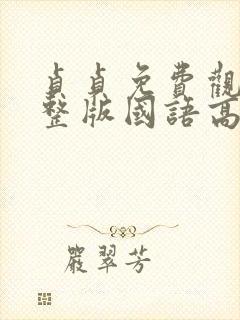 貞貞免費觀
整版國語高
嚴翠芳